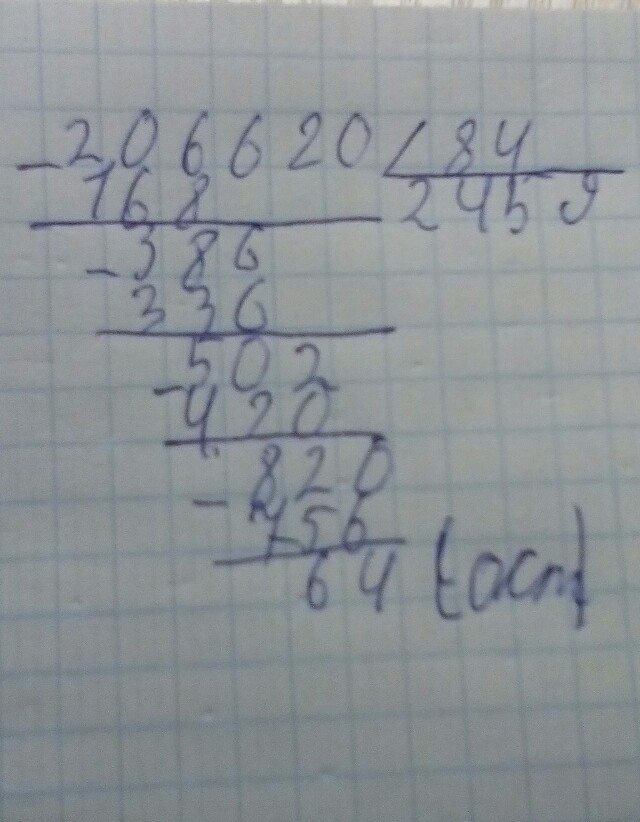 - 206620 84
168 2459
- 386
336
- 502
420
- 820
756
64 (ост)